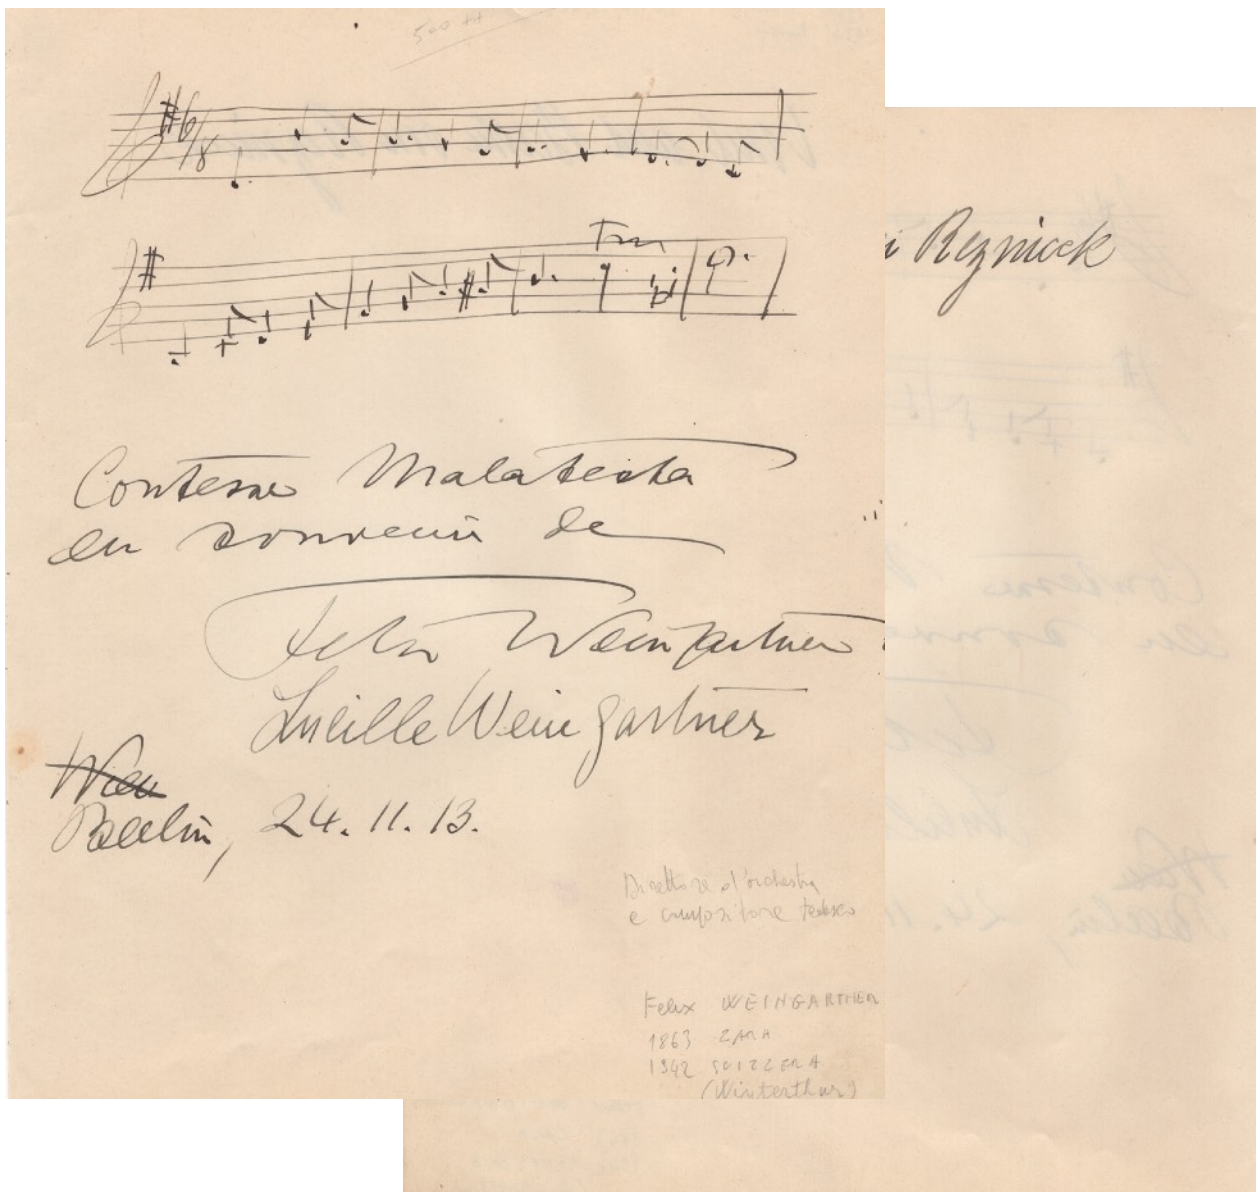 500 ++
6/8
Tr
Contesse Malatesta
en souvenir de
Felix Weingartner
Lucille Weingartner
Wien
Berlin, 24.11.13.
Direttore d'orchestra
e compositore tedesco
Felix WEINGARTNER
1863 ZARA
1942 SVIZZERA
(Winterthur)
Reznicek